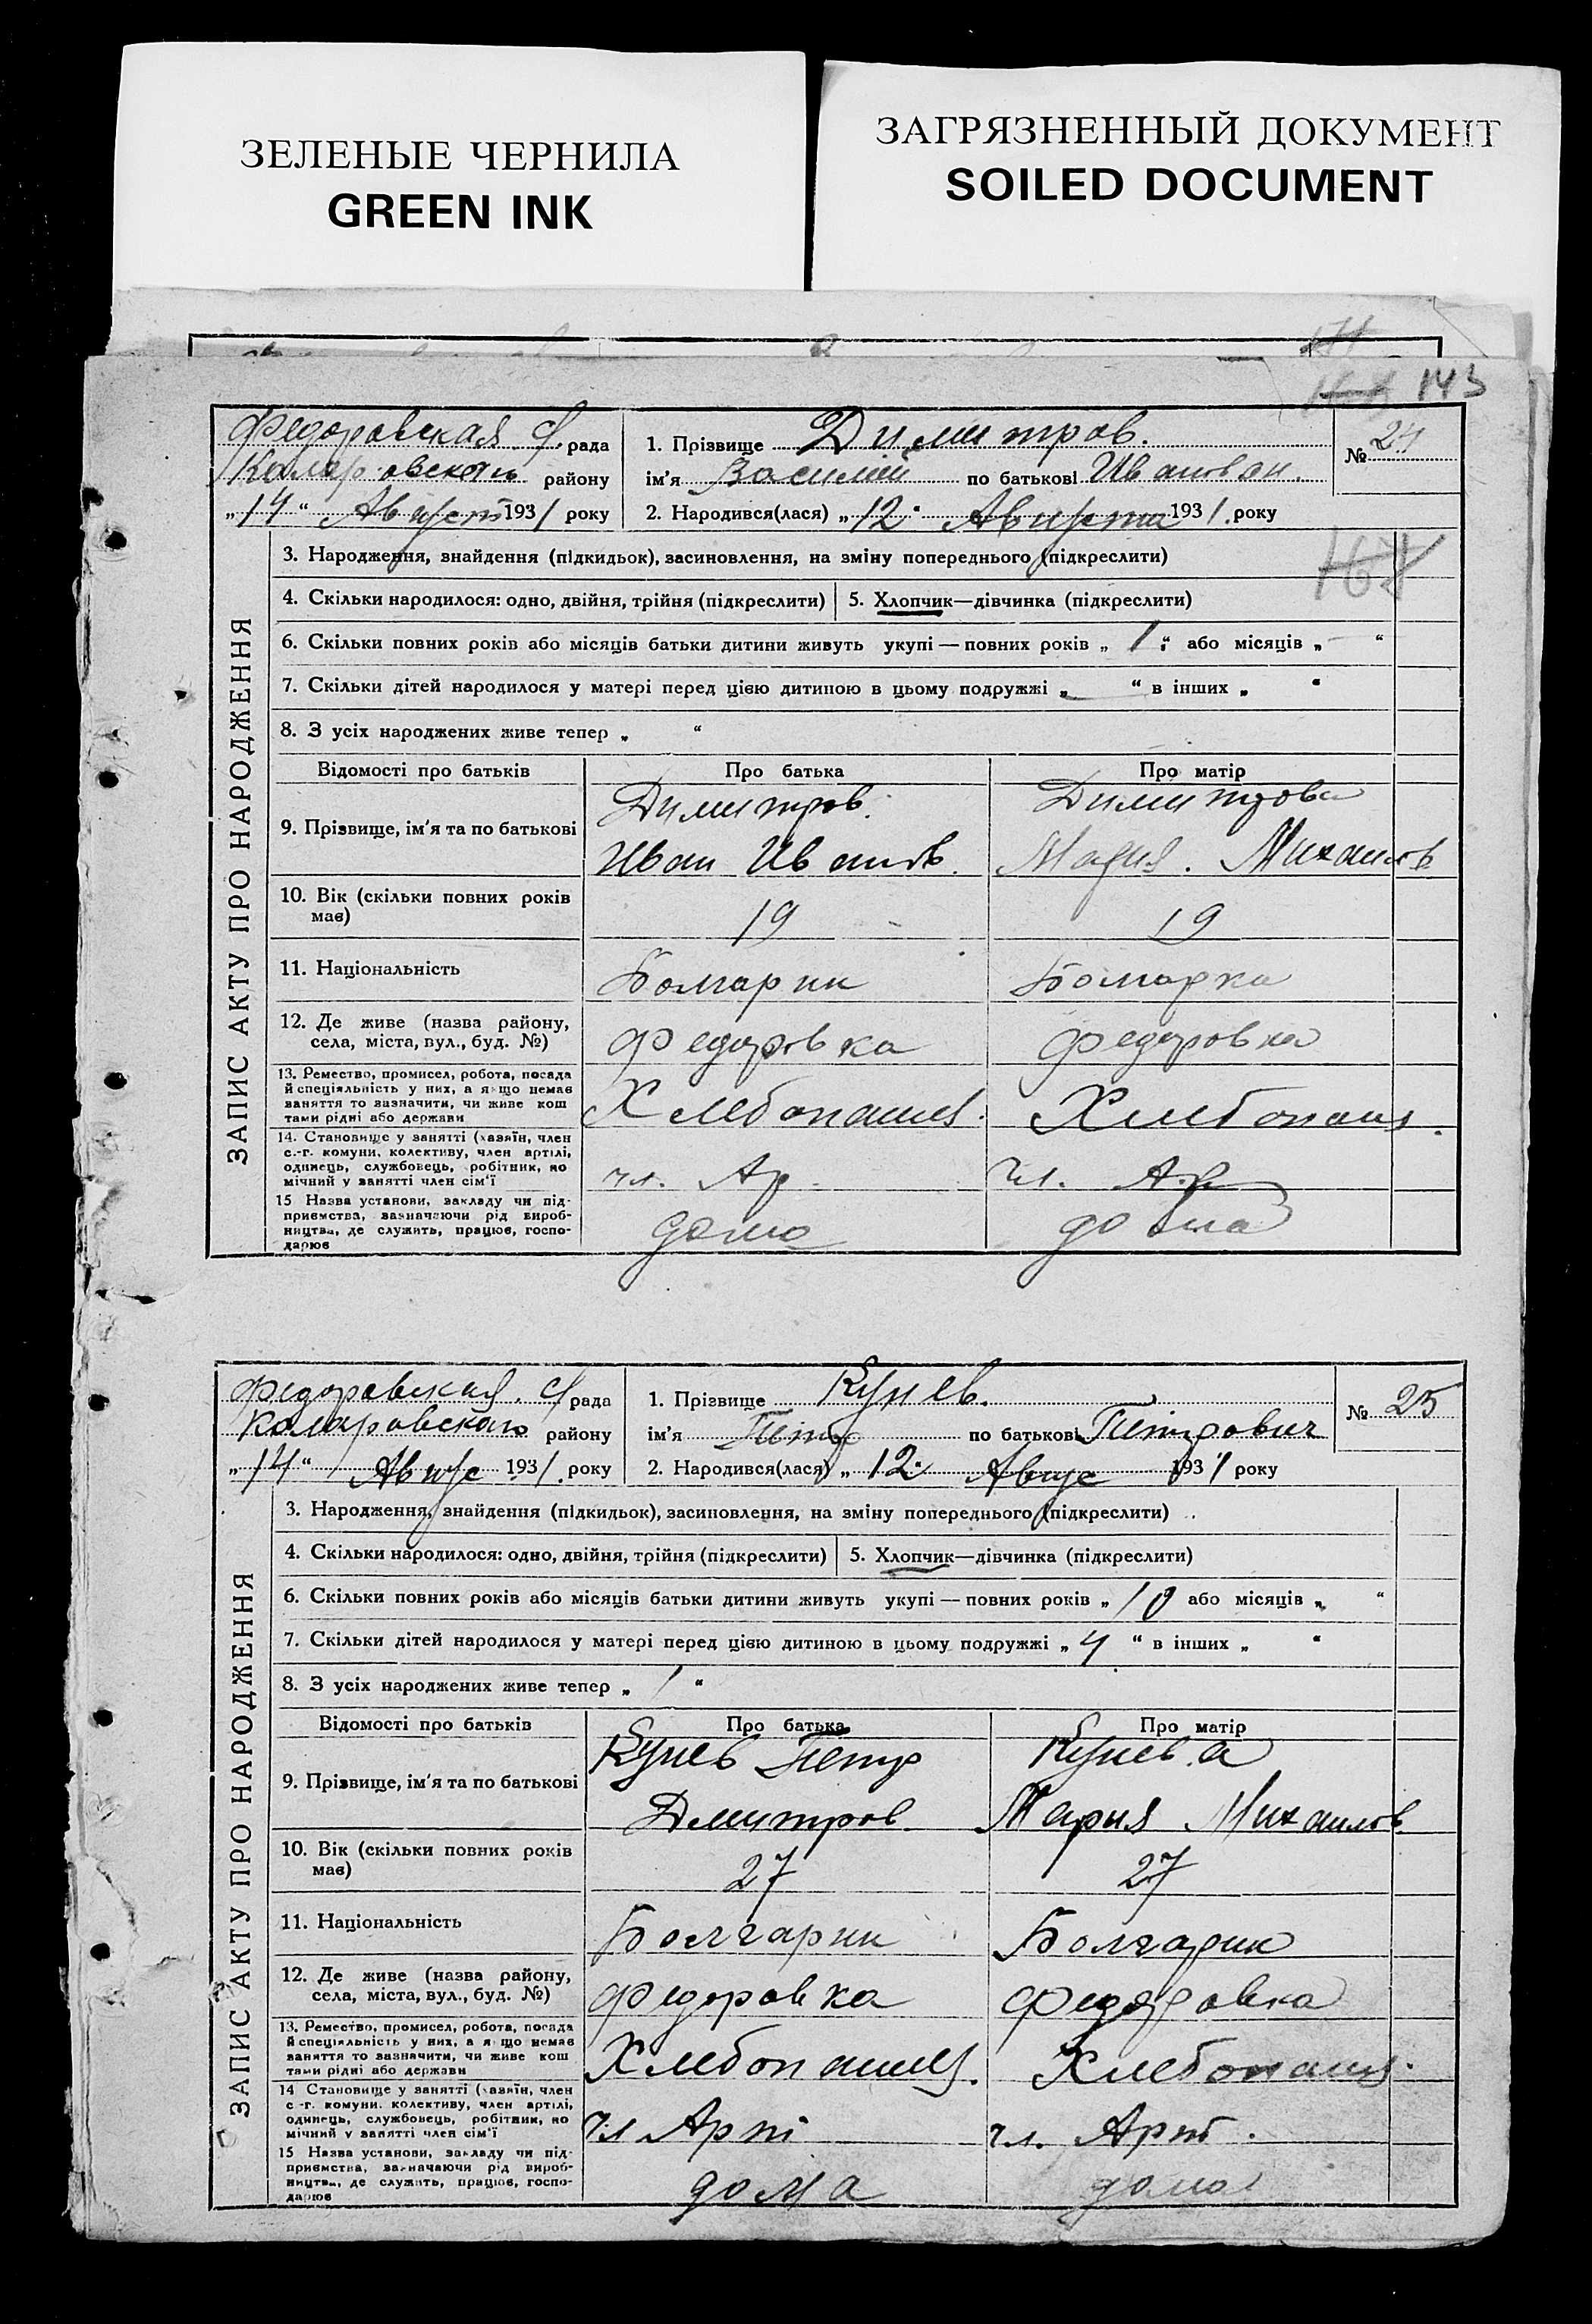 ЗЕЛЕНЫЕ ЧЕРНИЛА
GREEN INK
ЗАГРЯЗНЕННЫЙ ДОКУМЕНТ
SOILED DOCUMENT
143
Федоровская с/ рада
Коларовского району
„14“ Август 1931 року
1. Прізвище Димитров.
ім'я Василий по батькові Иванвич.
2. Народився(лася) „12“ Августа 1931. року
№ 24
ЗАПИС АКТУ ПРО НАРОДЖЕННЯ
3. Народження, знайдення (підкидьок), засиновлення, на зміну попереднього (підкреслити)
4. Скільки народилося: одно, двійня, трійня (підкреслити) 5. Хлопчик—дівчинка (підкреслити)
6. Скільки повних років або місяців батьки дитини живуть укупі — повних років „ 1 “ або місяців „ - “
7. Скільки дітей народилося у матері перед цією дитиною в цьому подружжі „ — “ в інших „ “
8. З усіх народжених живе тепер „ “
Відомості про батьків Про батька Про матір
9. Прізвище, ім'я та по батькові
Димитров. Димитрова
Иван Иванов. Мария. Михаилов
10. Вік (скільки повних років має) 19 19
11. Національність Болгарин Болгарка
12. Де живе (назва району, села, міста, вул., буд. №) Федоровка Федоровка
13. Ремество, промисел, робота, посада й спеціяльність у них, а якщо немає заняття то зазначити, чи живе коштами рідні або держави Хлебопашец. Хлебопаш.
14. Становище у занятті (хазяїн, член с.-г. комуни, колективу, член артілі, одинець, службовець, робітник, помічний у занятті член сім'ї чл. Ар. чл. Ар
15 Назва установи, закладу чи підприємства, зазначаючи рід виробництва, де служить, працює, господарює дома дома
Федоровская. с/ рада
Коларовского району
„14“ Авгус 1931. року
1. Прізвище Кунев.
ім'я Петр по батькові Петрович
2. Народився(лася) „12“ Авгус 1931 року
№ 25
ЗАПИС АКТУ ПРО НАРОДЖЕННЯ
3. Народження, знайдення (підкидьок), засиновлення, на зміну попереднього (підкреслити)
4. Скільки народилося: одно, двійня, трійня (підкреслити) 5. Хлопчик—дівчинка (підкреслити)
6. Скільки повних років або місяців батьки дитини живуть укупі — повних років „ 10 або місяців „ “
7. Скільки дітей народилося у матері перед цією дитиною в цьому подружжі „ 4 “ в інших „ “
8. З усіх народжених живе тепер „ 1 “
Відомості про батьків Про батька Про матір
9. Прізвище, ім'я та по батькові
Кунев Петр Кунева
Дмитров. Мария Михаилов.
10. Вік (скільки повних років має) 27 27
11. Національність Болгарин Болгарин
12. Де живе (назва району, села, міста, вул., буд. №) Федоровка Федоровка
13. Ремество, промисел, робота, посада й спеціяльність у них, а якщо немає заняття то зазначити, чи живе коштами рідні або держави Хлебопашец. Хлебопаш.
14 Становище у занятті (хазяїн, член с.-г. комуни, колективу, член артілі, одинець, службовець, робітник, помічний у занятті член сім'ї чл Арті чл. Арт.
15 Назва установи, закладу чи підприємства, зазначаючи рід виробництва, де служить, працює, господарює дома дома